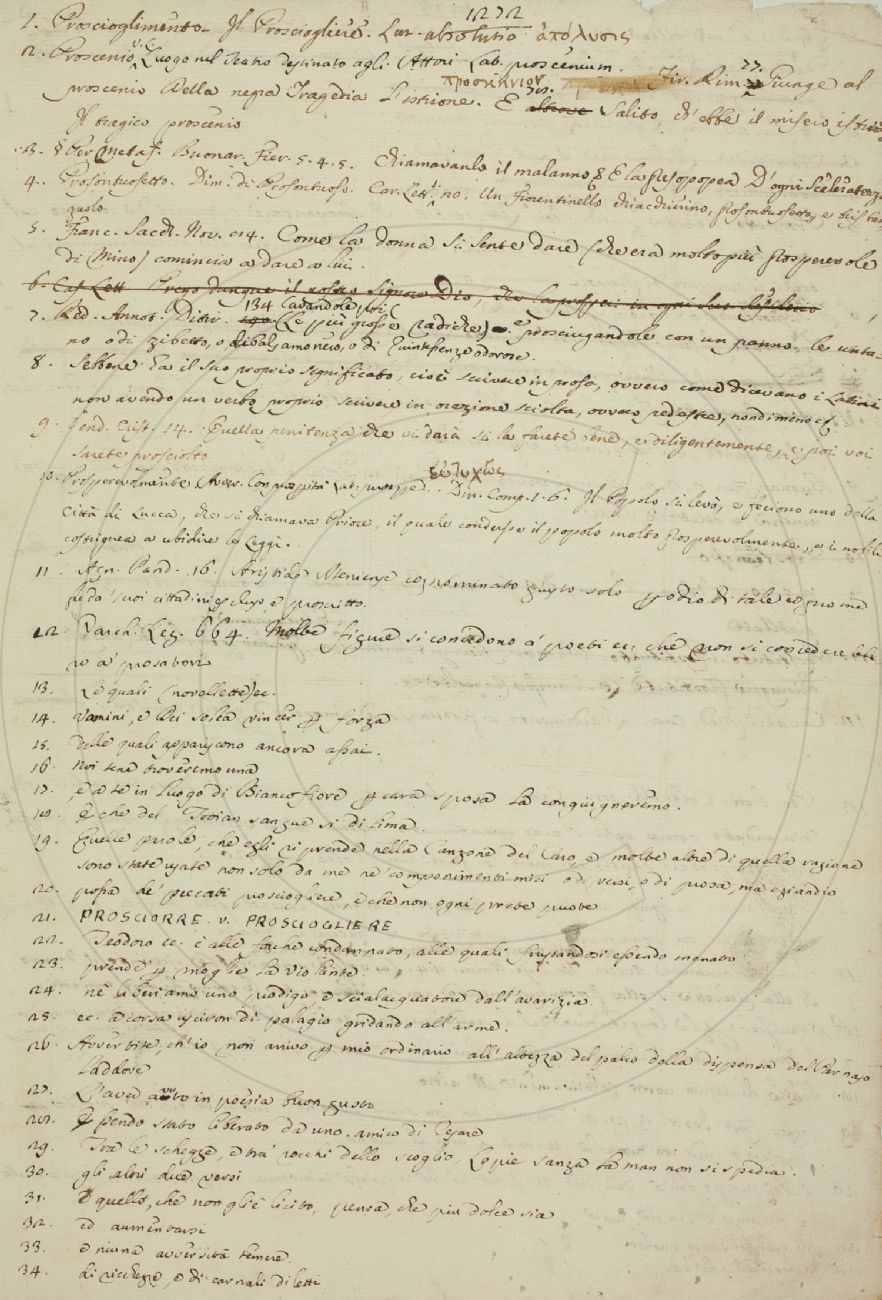 1272
1. Proscioglimento. Il Prosciogliere. Lat. absolutio ἀπόλυσις
2. Proscenio v.g. Luogo nel Teatro destinato agli Attori Lat. proscenium.
προσκήνιον Fir. Rim. 27. Giunge al
proscenio della negra Tragedia l'istrione. E altrove Salito, ch'ebbe il misero istrio
Il tragico proscenio
3. § Per Metaf. Buonar. Fier. 5. 4. 5. Chiamavanlo il malanno, E la prosopopea D'ogni sceleratezza
4. Prosontuosetto. Dim. di Prosontuoso. Car. Lett. Un Fiorentinello prosontuosetto, e
zuolo
5. Franc. Sacch. Nov. 14. Come la donna si sente dare (che era molto più prosperevole
di Mino) comincia a dare a lui.
6. Cas. Lett. Prego dunque il nostro Signore Dio, che la prosperi in ogni suo
7. Red. Annot. Ditir. 134 Cavandole poi (le più grosse radiche) e prosciugandole con un panno, le unta-
no o di zibetto, o di balsamo nero, o di quintessenze odorose.
8. Sebbene ha il suo proprio significato, cioè scrivere in prosa, ovvero come dicevano i Latini
non avendo un verbo proprio scrivere in orazione sciolta, ovvero pedestre, nondimeno ec.
9. 14. Quella penitenza che vi darà si la farete bene, e diligentemente, e poi voi
sarete prosciolto
10. Prosperevolmente Avver. Con prosperità Lat. prospere. εὐτυχῶς Din. Comp. 1. 6. Il Popolo si levò, e feciono uno della
Città di Lucca, che si chiamava Priore, il quale condusse il popolo molto prosperevolmente, e i nobili
costrignea a ubidire le Leggi.
11. Agn. Pand. 16. Aristide Ateniese cognominato giusto solo per odio di tale cognome
fu da' suoi cittadini escluso, e proscritto.
12. Varch. Lez. 664. Molte figure si concedono a' poeti ec. che non si concederebbe
ro a' prosatori
13. Le quali (novellette) ec.
14. Uomini, e Dei solea vincer per forza
15. delle quali appariscono ancora assai.
16. Noi sene troveremo una
17. e a te in luogo di Biancofiore per cara sposa la congiugneremo.
18. E che del Troian sangue si dilima.
19. Quelle parole, che egli riprende nella Canzone del Caro, e molte altre di quella ragione
sono state usate non solo da me ne' componimenti miei o di versi, o di prosa, ma eziandio
20. possa de' peccati prosciogliere, e che non ogni prete puote
21. PROSCIORRE. v. PROSCIOGLIERE
22. Teodoro ec. è alle forche condannato, alle quali frustandosi essendo menato
23. prende per moglie la Violante
24. nè liberiamo uno prodigo, e scialacquatore dall'avarizia
25. ec. a corsa usciron di palagio gridando all'arme.
26. Avvertite, ch'io non arrivo per mio ordinario all'altezza del palco della dispensa del Parnaso
Laddove
27. L'aver avuto in poesia buon gusto
28. Essendo stato liberato da uno amico di Cesare
29. Tra le schegge, e tra' rocchi dello scoglio, Lo piè sanza la man non si spedia.
30. gli altri dice versi
31. E quello, che non gli è licito, pensa, che più dolce sia
32. ed aumentarsi
33. e niuna avversità temere
34. di ricchezze, e di carnali diletti